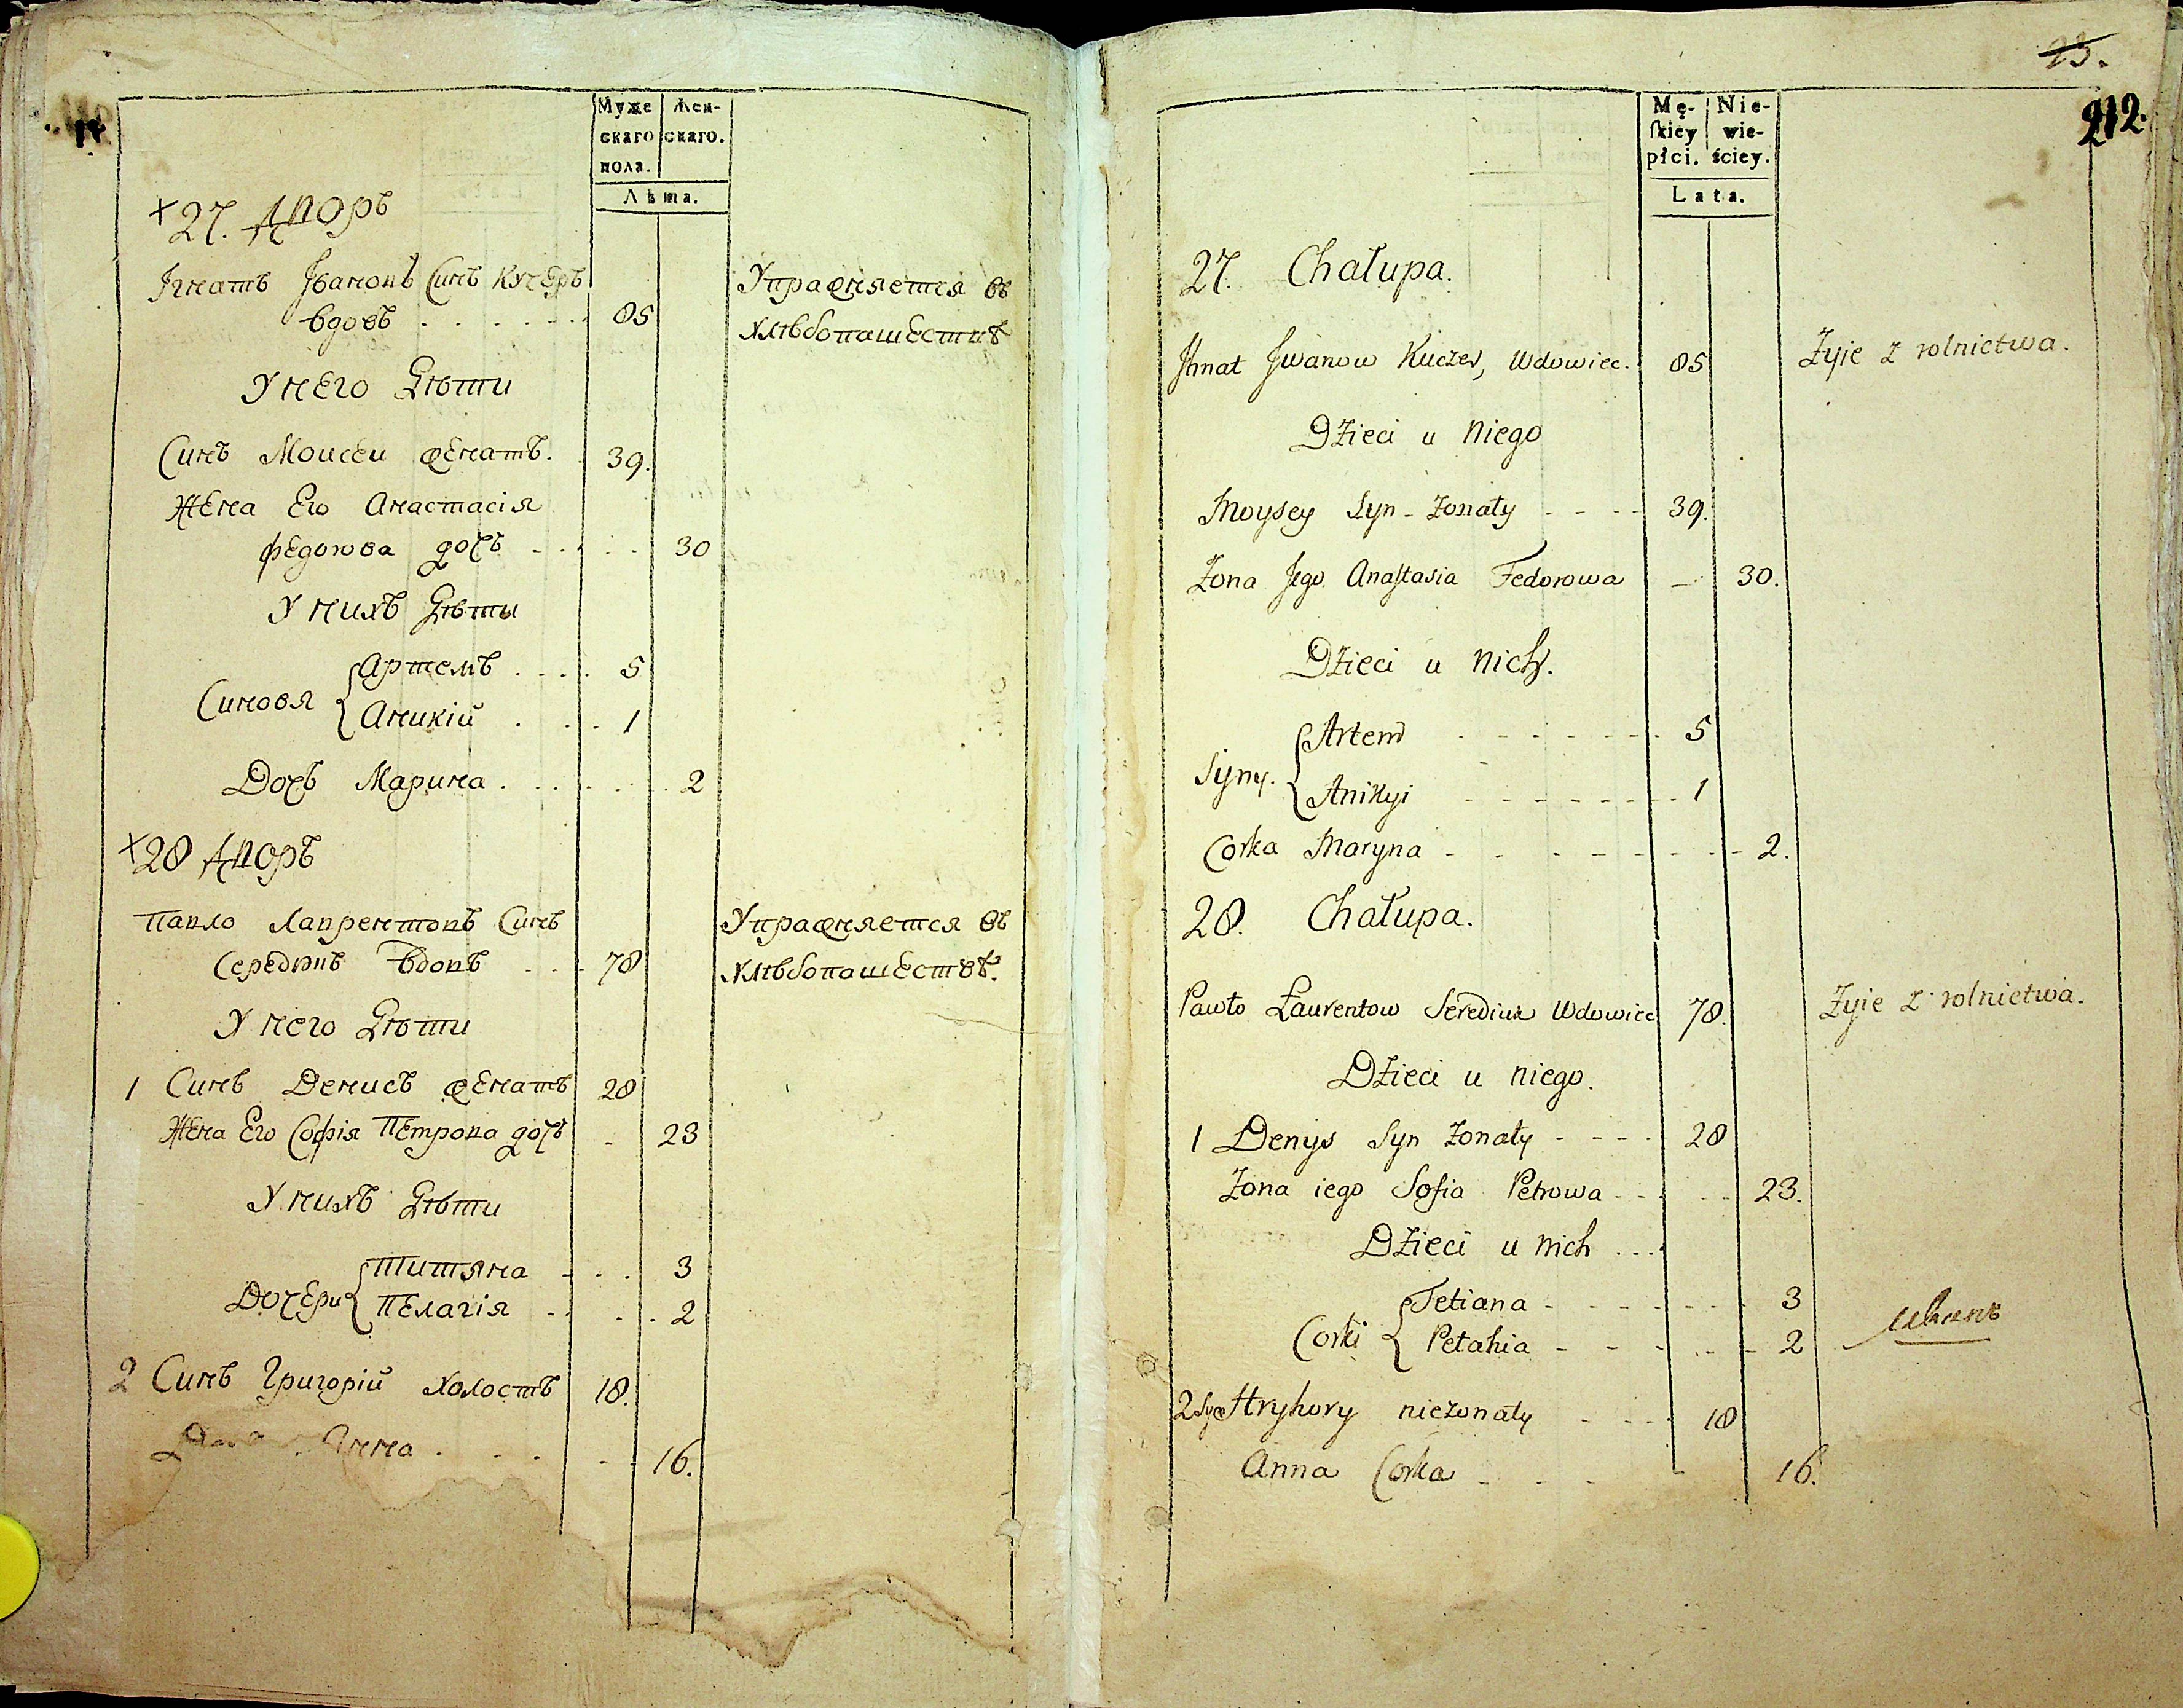 Муже
скаго
пола.
Жен-
скаго.
Лѣта.
27. Дворъ
Игнатъ Ивановъ Синъ Кучеръ
вдовъ . . . . . . 85
Упражняется въ
хлѣбопашествѣ
У него Дѣти
Синъ Моисеи женатъ. 39.
Жена Его Анастасія
федорова дочъ - . . . 30
У нихъ Дѣты
Синовя { Артемъ . . . . 5
Аникій . . . 1
Дочъ Марина . . . . . . 2
28 Дворъ
Павло Лаврентовъ Синъ
Середюкъ вдовъ . . . 78
Упражняется въ
хлѣбопашествѣ.
У него Дѣти
1 Синъ Денисъ женатъ 28
Жена Его Софія Петрова дочъ - 23
У нихъ Дѣти
Дочери { Титяна - . . 3
Пелагія . . . . 2
2 Синъ Григорій холостъ 18.
Анна . . . . 16.
23.
212.
Mę-
skiey
płci.
Nie-
wie-
ściey.
Lata.
27. Chałupa.
Ihnat Iwanow Kuczer, Wdowiec. 85
Żyie z rolnictwa.
Dzieci u Niego
Moysey Syn - żonaty - - - - 39.
Żona Jego Anastasia Fedorowa — 30.
Dzieci u nich.
Syny. { Artem - - - - - - - 5
Anikyi - - - - - - - 1
Corka Maryna - - - - - - - - 2.
28. Chałupa.
Pawło Ławrentow Serediuk Wdowiec 78.
Żyie z rolnictwa.
Dzieci u niego.
1 Denys Syn żonaty - - - - 28
Żona iego Sofia Petrowa - - - - 23.
Dzieci u nich . . . .
Corki { Tetiana - - - - - - - 3
Pełahia - - - - - - 2
2 Syn Hryhory nieżonaty - - - - 18
Anna Corka - - - 16.